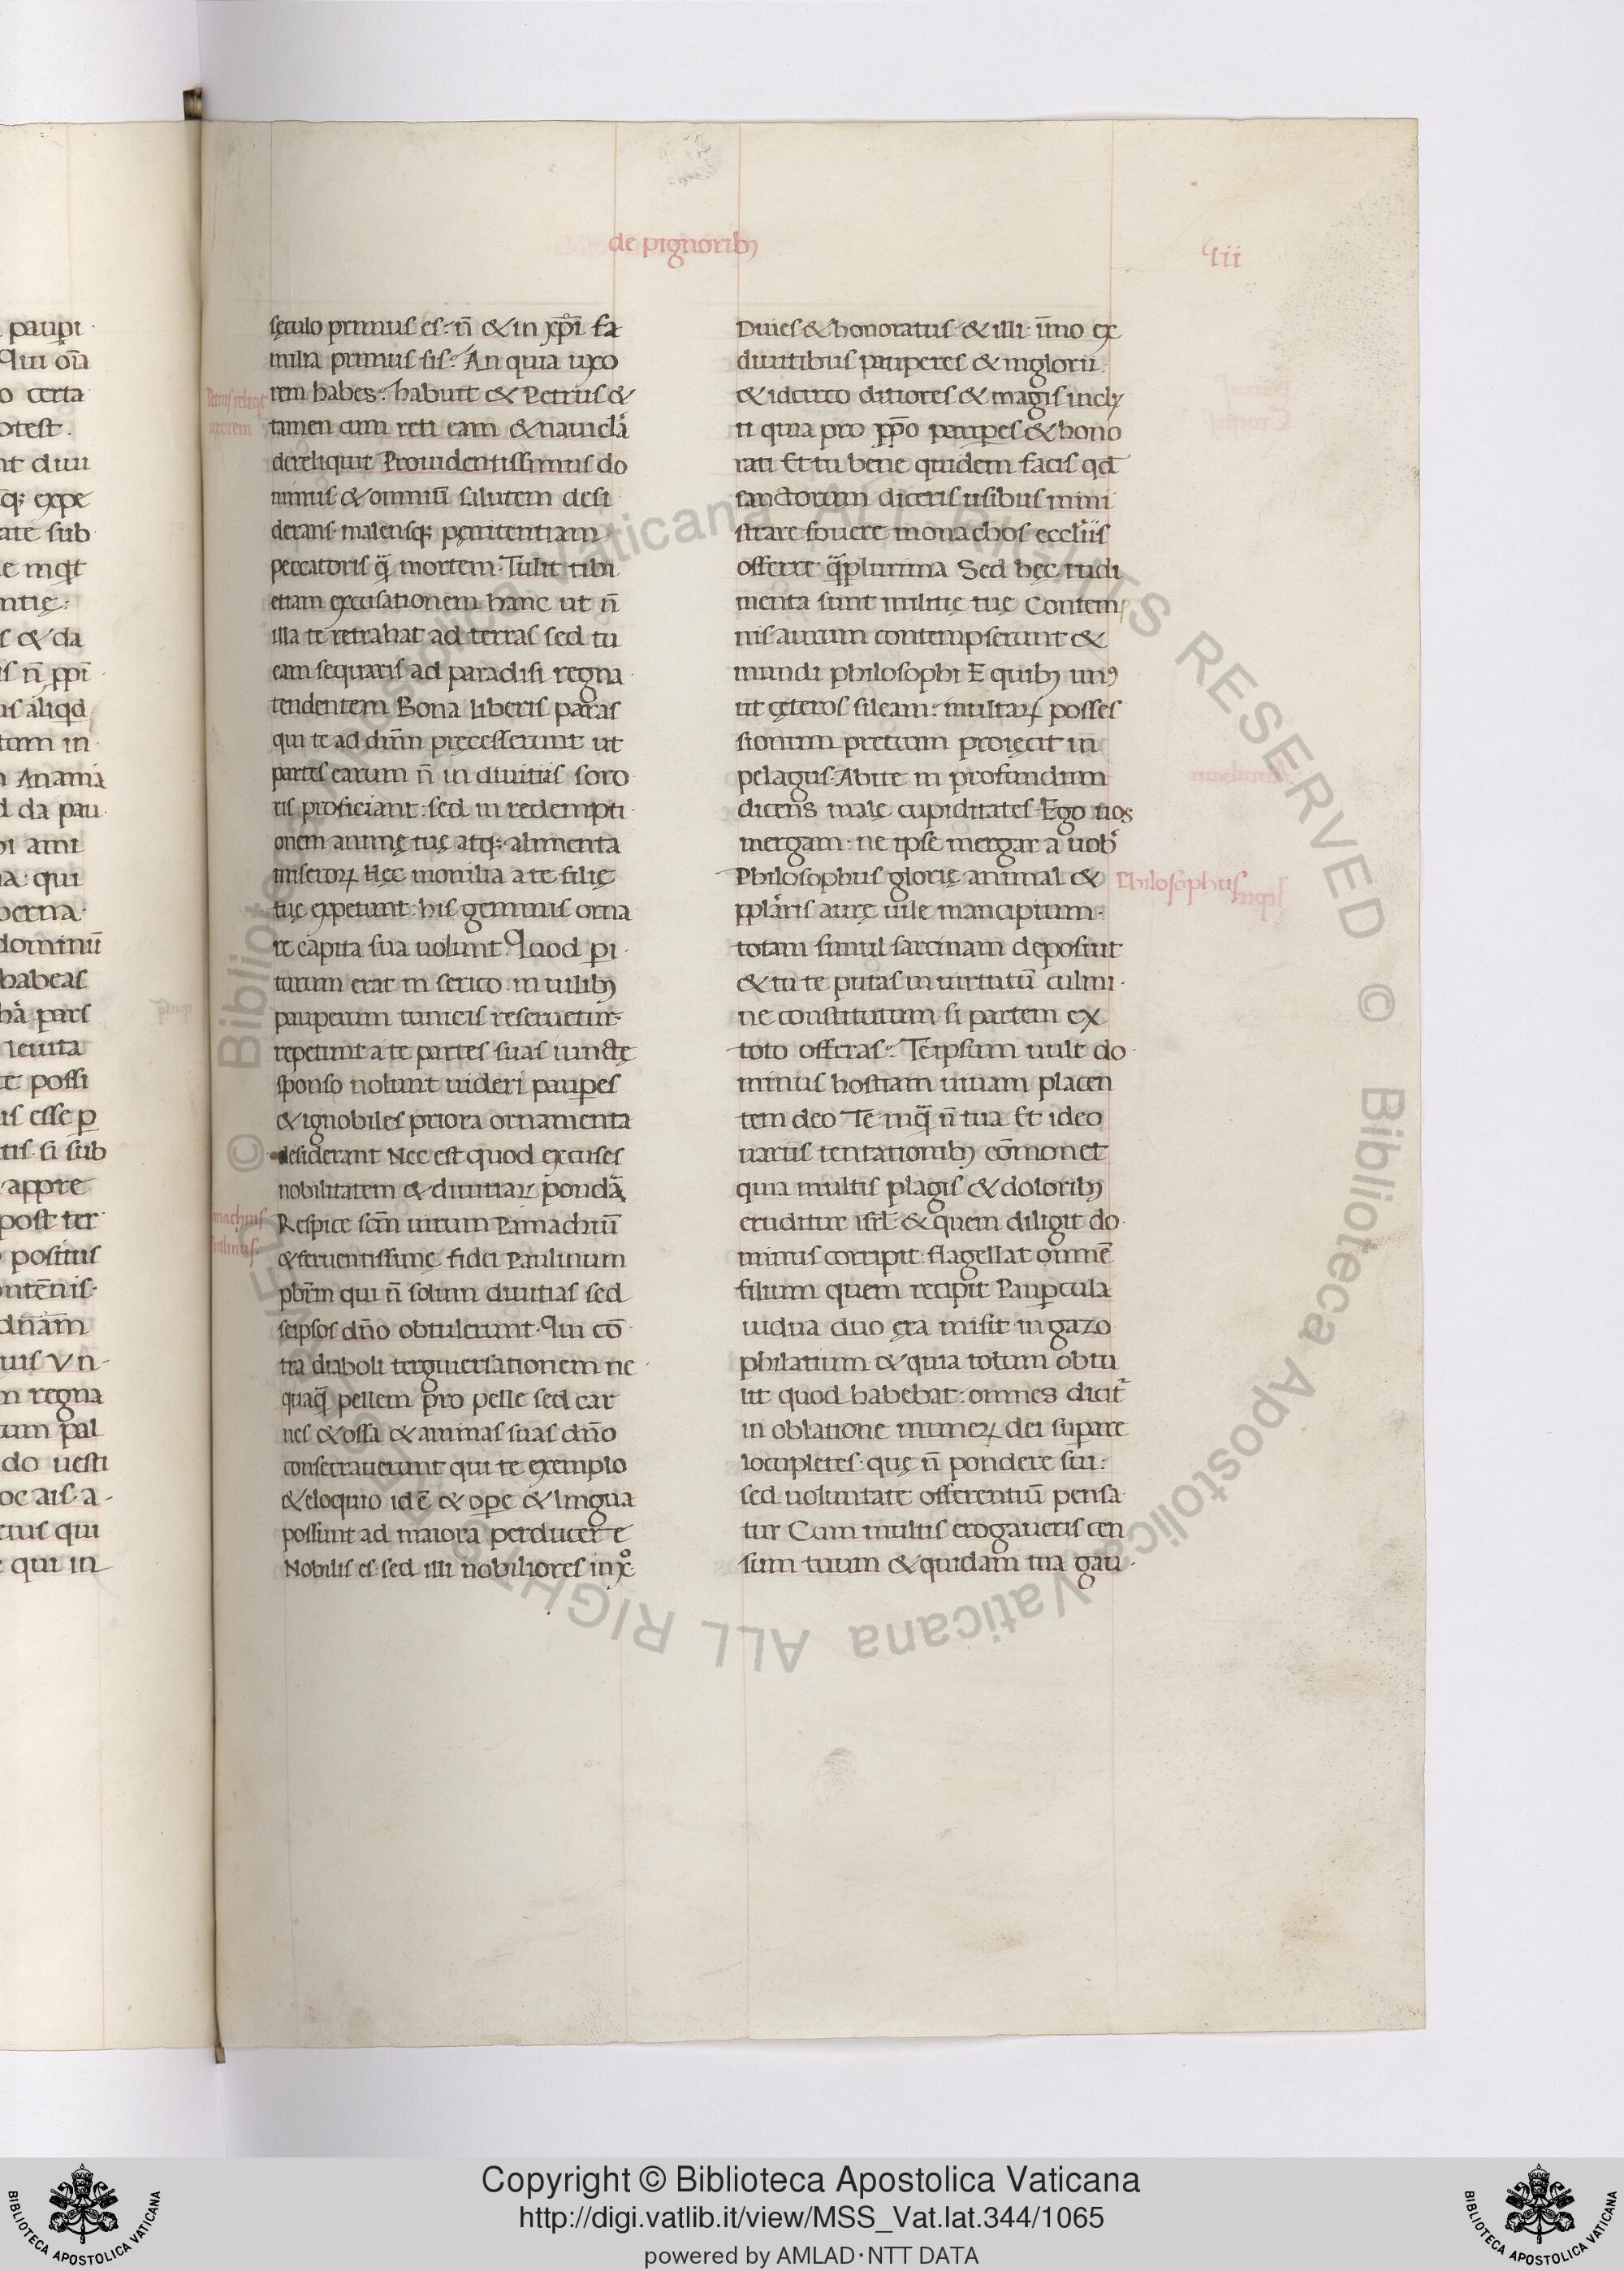 de pignorib⁊
paupi
Qui oīa
o certa
otest.
nt diui
q; expe
ate sub
e mqt
ntię:
s & da
is n̄ ppī
us aliqd
tum in
Anania
d da pau
pi ami
a qui
perna
dominū
habeas
pars
leuita
te possi
us esse p
tis. si sub
appre
post ter
positus
ontēnis.
dnām
uis Vn-
m regna
tum pal
do uesti
oc ais. a-
cuius qui
qui in
sęculo primus es: n̄ & in xp̄i fa
milia primus sis: An quia uxo
rem habes: habuit & Petrus &
tamen cum reti eam & nauiclā
dereliquit Prouidentissimus do
minus & omniū salutem desi
derans malensq; pęnitentiam
peccatoris q̄ mortem. Tulit tibi
etiam excusationem hanc ut n̄
illa te retrahat ad terras sed tu
eam sequaris ad paradisi regna
tendentem Bona liberis paras
qui te ad dn̄m pręcesserunt ut
partes earum n̄ in diuitias soro
ris proficiant: sed in redempti
onem animę tuę atq; alimenta
miseroꝝ Hęc monilia a te filię
tuę expetunt: his gemmis orna
re capita sua uolunt Quod pi
turum erat in serico. in uilib⁊
pauperum tunicis reseruetur
repetunt a te partes suas iunctę
sponso nolunt uideri paupes
& ignobiles priora ornamenta
desiderant Nec est quod excuses
nobilitatem & diuitiaꝝ pondā
Respice scm̄ uirum Pamachiū
& feruentissimę fidei Paulinum
pbr̄m qui n̄ solum diuitias sed
seipsos dn̄o obtulerunt. Qui cō
tra diaboli tergiuersationem ne
quaq̄ pellem pro pelle sed car
nes & ossa & animas suas dn̄o
consecrauerunt qui te exemplo
& eloquio idē & ope & lingua
possunt ad maiora perducere
Nobilis es. sed illi nobiliores in xᵒ
Petrus reliqt
uxorem
machius
aulinus
Diues & honoratus. & illi. īmo ex
diuitibus pauperes & inglorii.
& idcirco ditiores & magis incly
ti quia pro xp̄o paupes & hono
rati Et tu bene quidem facis qd̄
sanctorum diceris usibus mini
strare fouere monachos eccliis
offerre q̄plurima Sed hęc rudi
menta sunt militię tuę Contem
nis aurum contempserunt &
mundi philosophi E quib⁊ unꝰ
ut cęteros sileam: multaꝝ posses
sionum pretium proięcit in
pelagus. Abite in profundum
dicens malę cupiditates. Ego uos
mergam: ne ipse mergar a uob̄
Philosophus glorię animal &
pplāris aurę uile mancipium.
totam simul sarcinam deposuit
& tu te putas in uirtutū culmi
ne constitutum. si partem ex
toto offeras: Teipsum uult do
minus hostiam uiuam placen
tem deo Te inq̄ n̄ tua Et ideo
uariis tentationib⁊ cōmonet
quia multis plagis & dolorib⁊
eruditur isrl̄. & quem diligit do
minus corripit: flagellat omnē
filium quem recipit Paupcula
uidua duo ęra misit in gazo
philatium & quia totum obtu
lit quod habebat: omnes dicit̄
in oblatione muneꝝ dei supare
locupletes. quę n̄ pondere sui:
sed uoluntate offerentiū pensa
tur Cum multis erogaueris cen
sum tuum & quidam tua gau
Philosophus
© Biblioteca Apostolica Vaticana ALL RIGHTS RESERVED
© Biblioteca Apostolica Vaticana ALL RIGHTS RESERVED
Copyright © Biblioteca Apostolica Vaticana
http://digi.vatlib.it/view/MSS_Vat.lat.344/1065
powered by AMLAD·NTT DATA
BIBLIOTECA APOSTOLICA VATICANA
BIBLIOTECA APOSTOLICA VATICANA